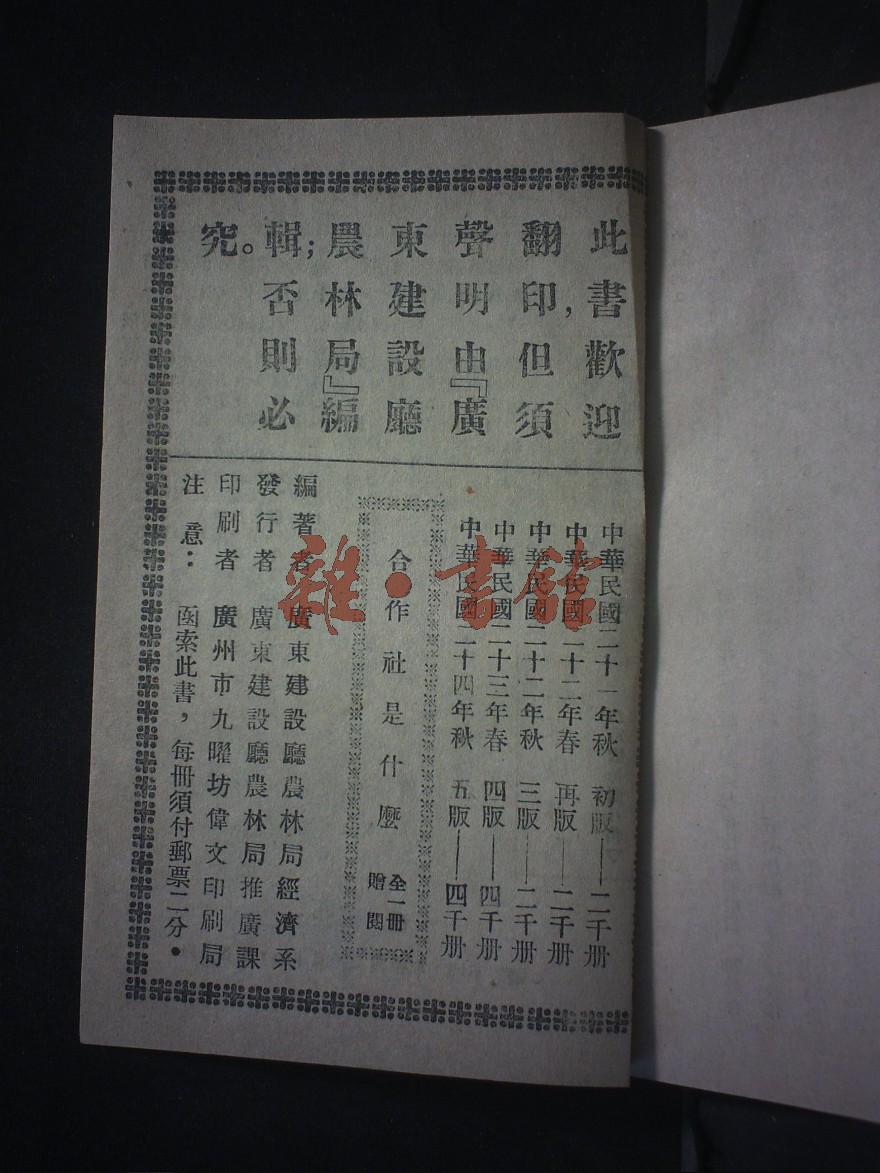 此書歡迎
翻印，但須
聲明由『廣
東建設廳
農林局』編
輯；否則必
究。
中華民國二十一年秋　初版——二千册
中華民國二十二年春　再版——二千册
中華民國二十二年秋　三版——二千册
中華民國二十三年春　四版——四千册
中華民國二十四年秋　五版——四千册
合作社是什麼
全一冊
贈閱
編著者　廣東建設廳農林局經濟系
發行者　廣東建設廳農林局推廣課
印刷者　廣州市九曜坊偉文印刷局
注意：　函索此書，每冊須付郵票二分。
雜·書館